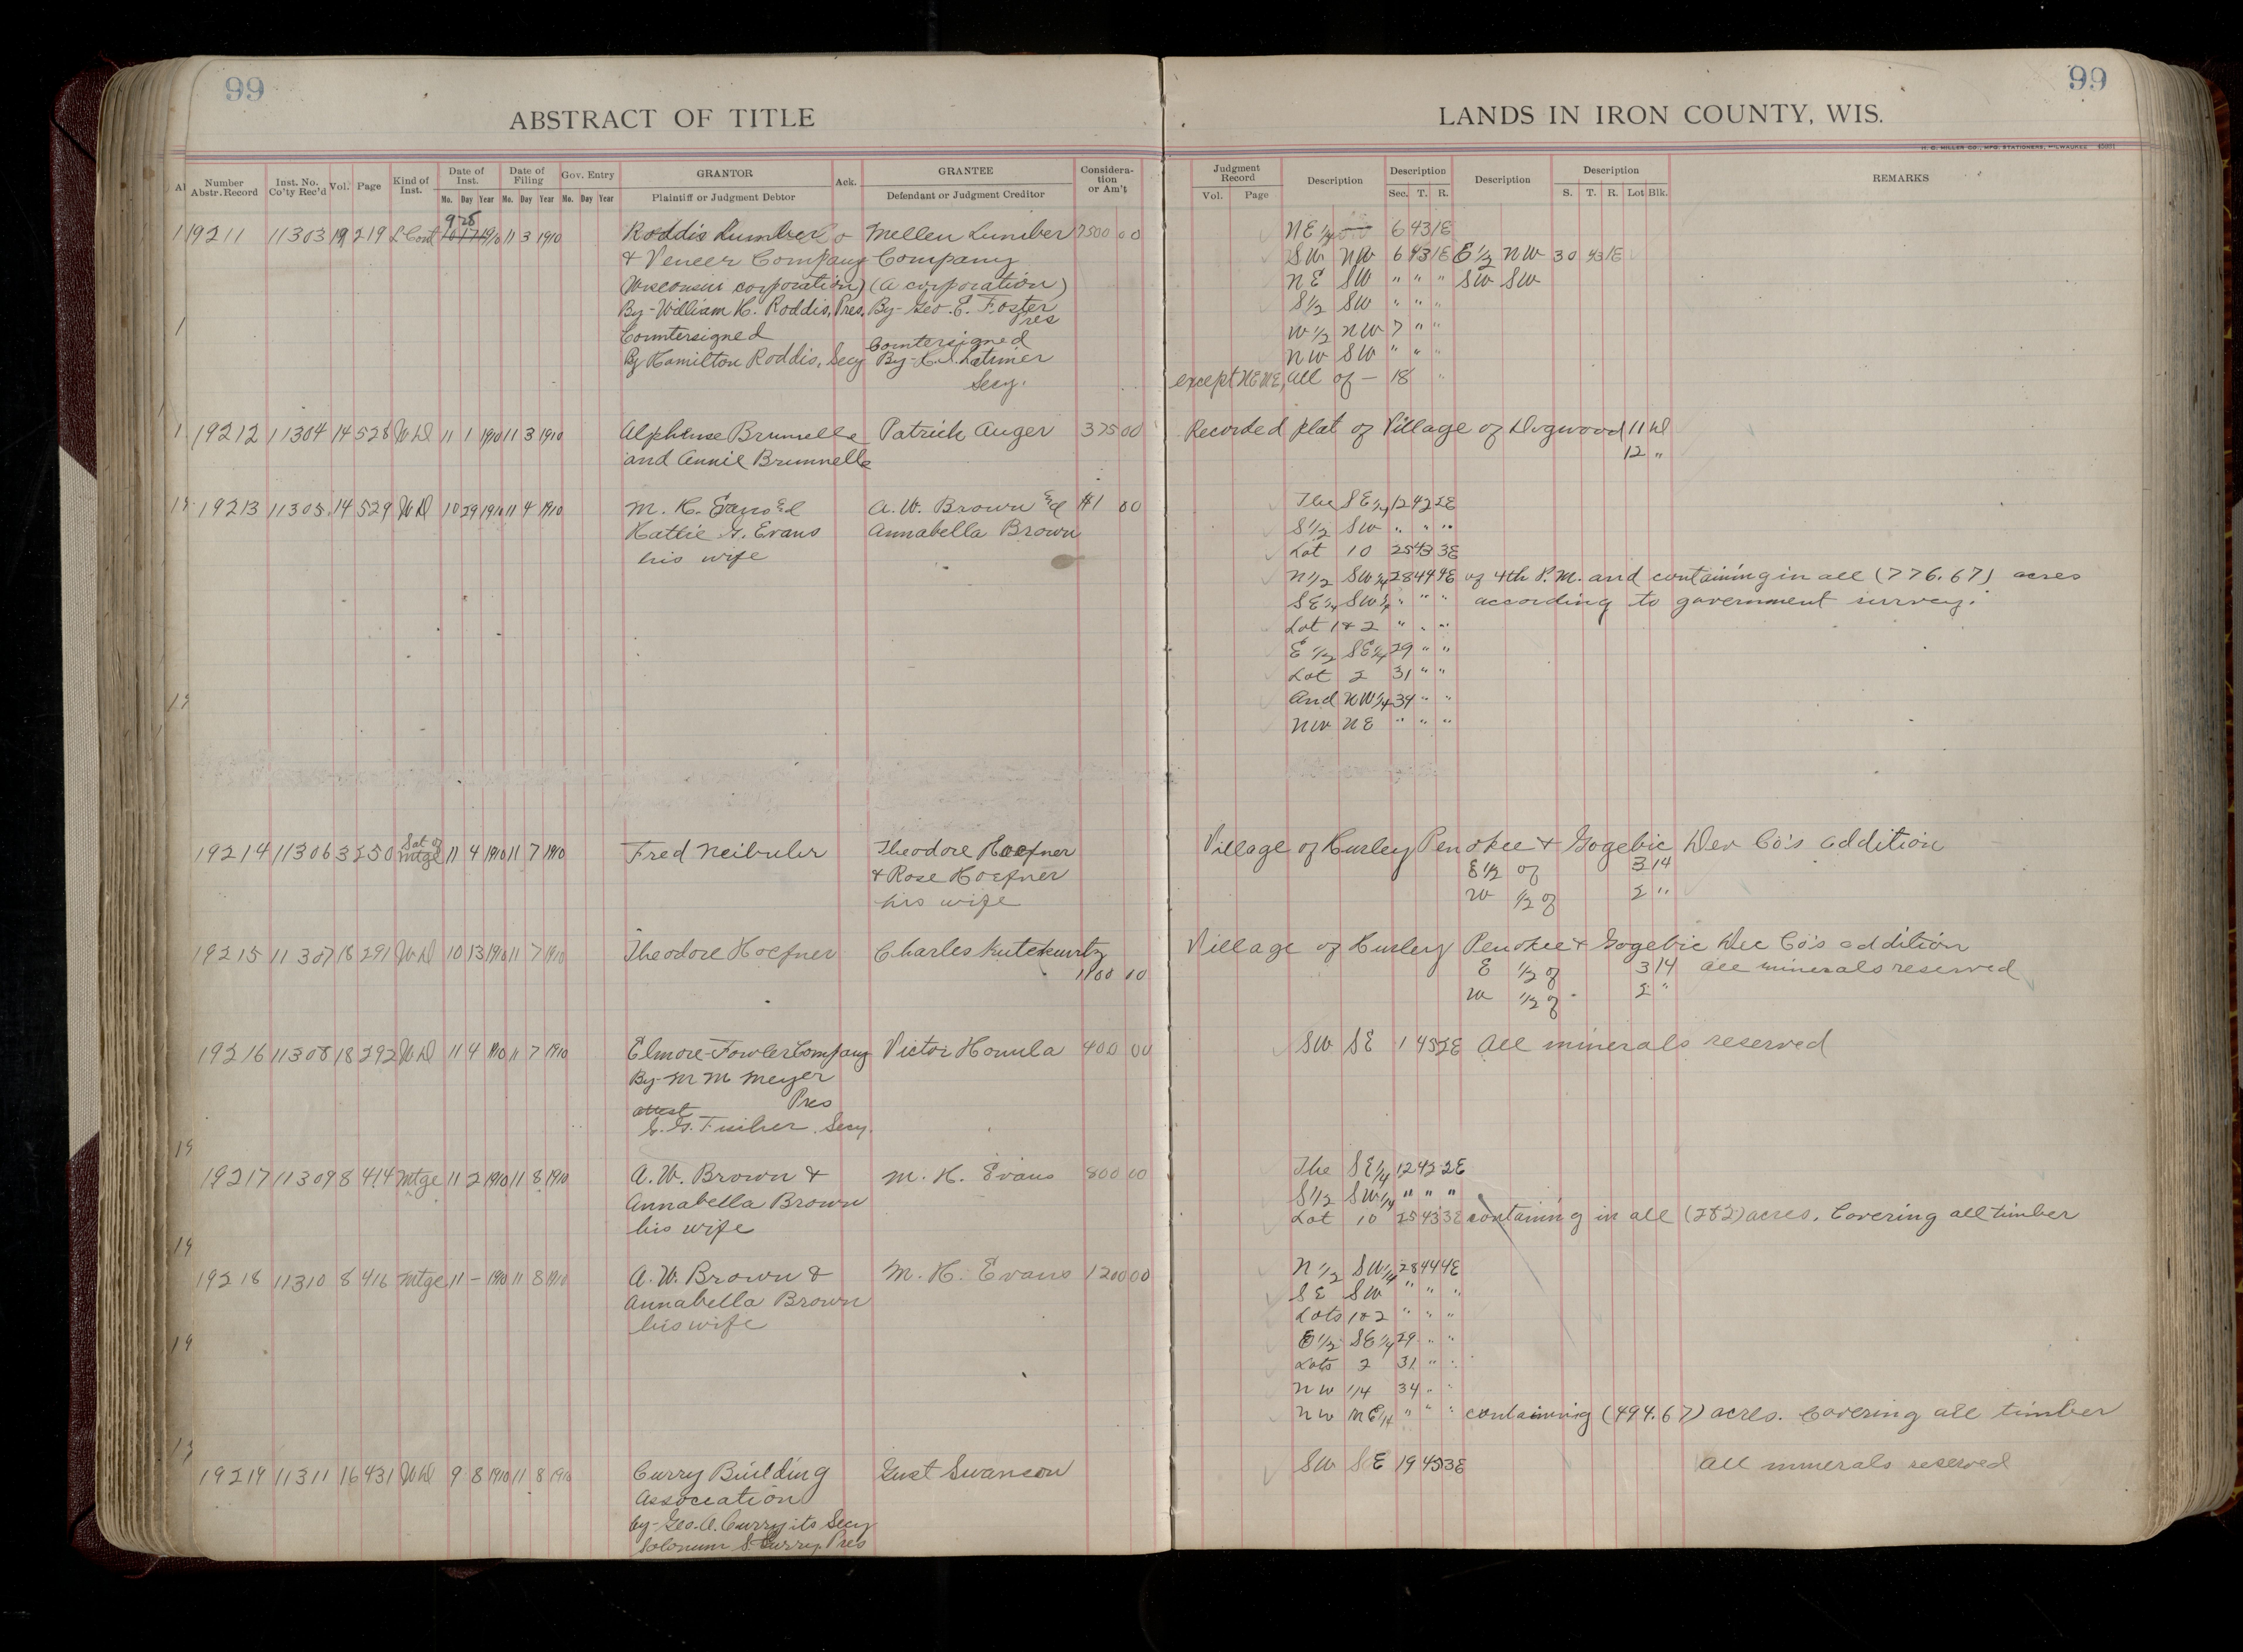 99
99
ABSTRACT OF TITLE
LANDS IN IRON COUNTY, WIS.
H. C. MILLER CO., MFG. STATIONERS, MILWAUKEE
Number Abstr. Record
Inst. No. Co'ty Rec'd
Vol.
Page
Kind of Inst.
Date of Inst.
Mo. Day Year
Date of Filing
Mo. Day Year
Gov. Entry
Mo. Day Year
GRANTOR
Plaintiff or Judgment Debtor
Ack.
GRANTEE
Defendant or Judgment Creditor
Considera-tion or Am't
Judgment Record
Vol. Page
Description
Description
Sec. T. R.
Description
Description
S. T. R. Lot Blk.
REMARKS
9 28
19211 11303 19 219 L Cont 10 17 1910 11 3 1910 Roddis Lumber Co Mellen Lumber 7500 00 NE 1/4 6 43 1E
& Veneer Company Company SW NW 6 43 1E E 1/2 NW 30 43 1E
Wisconsin corporation) (a corporation) NE SW " " " SW SW
By-William H. Roddis, Pres. By-Geo. E. Foster Pres S 1/2 SW " " "
Countersigned Countersigned W 1/2 NW 7 " "
By Hamilton Roddis, Secy By-H. Latimer NW SW " " "
Secy. except NE NE, All of - 18 "
19212 11304 14 528 WD 11 1 1910 11 3 1910 Alphonse Brunelle Patrick Auger 375 00 Recorded plat of Village of Dogwood 11 D
and Annie Brunnelle 12 "
19213 11305 14 529 WD 10 29 1910 11 4 1910 M. H. Evans & A. W. Brown & $1 00 The SE 1/4 12 42 2E
Hattie G. Evans Annabella Brown S 1/2 SW " " "
his wife Lot 10 25 43 3E
N 1/2 SW 1/4 28 44 4E of 4th P.M. and containing in all (776.67) acres
SE 1/4 SW 1/4 " " " according to government survey.
Lot 1 & 2 " " "
E 1/2 SE 1/4 29 " "
Lot 2 31 " "
And NW 1/4 34 " "
NW NE " " "
19214 11306 3 250 Sat of Mtge 11 4 1910 11 7 1910 Fred Neibuler Theodore Hoefner Village of Hurley Penokee & Gogebic Dev Co's addition
& Rose Hoefner E 1/2 of 3 14
his wife W 1/2 of 2 "
19215 11307 18 291 WD 10 13 1910 11 7 1910 Theodore Hoefner Charles Kutekurtz Village of Hurley Penokee & Gogebic Dev Co's addition
1100 00 E 1/2 of 3 14 all minerals reserved
W 1/2 of 2 "
19216 11308 18 292 WD 11 4 1910 11 7 1910 Elmore-Fowler Company Victor Honula 400 00 SW SE 1 45 2E All minerals reserved
By-M M Meyer
Pres
attest
Secy.
19217 11309 8 414 Mtge 11 2 1910 11 8 1910 A. W. Brown & M. H. Evans 800 00 The SE 1/4 12 42 2E
Annabella Brown S 1/2 SW 1/4 " " "
his wife Lot 10 25 43 3E containing in all (282) acres. Covering all timber
19218 11310 8 416 Mtge 11 - 1910 11 8 1910 A. W. Brown & M. H. Evans 1200 00 N 1/2 SW 1/4 28 44 4E
Annabella Brown SE SW " " "
his wife Lots 1 & 2 " " "
E 1/2 SE 1/4 29 " "
Lots 2 31 " "
NW 1/4 34 " "
NW NE 1/4 " " " containing (494.67) acres. Covering all timber
19219 11311 16 431 WD 9 8 1910 11 8 1910 Curry Building Gust Swanson SW SE 19 45 3E All minerals reserved
Association
by-Geo. A. Curry its Secy
S. Curry, Pres